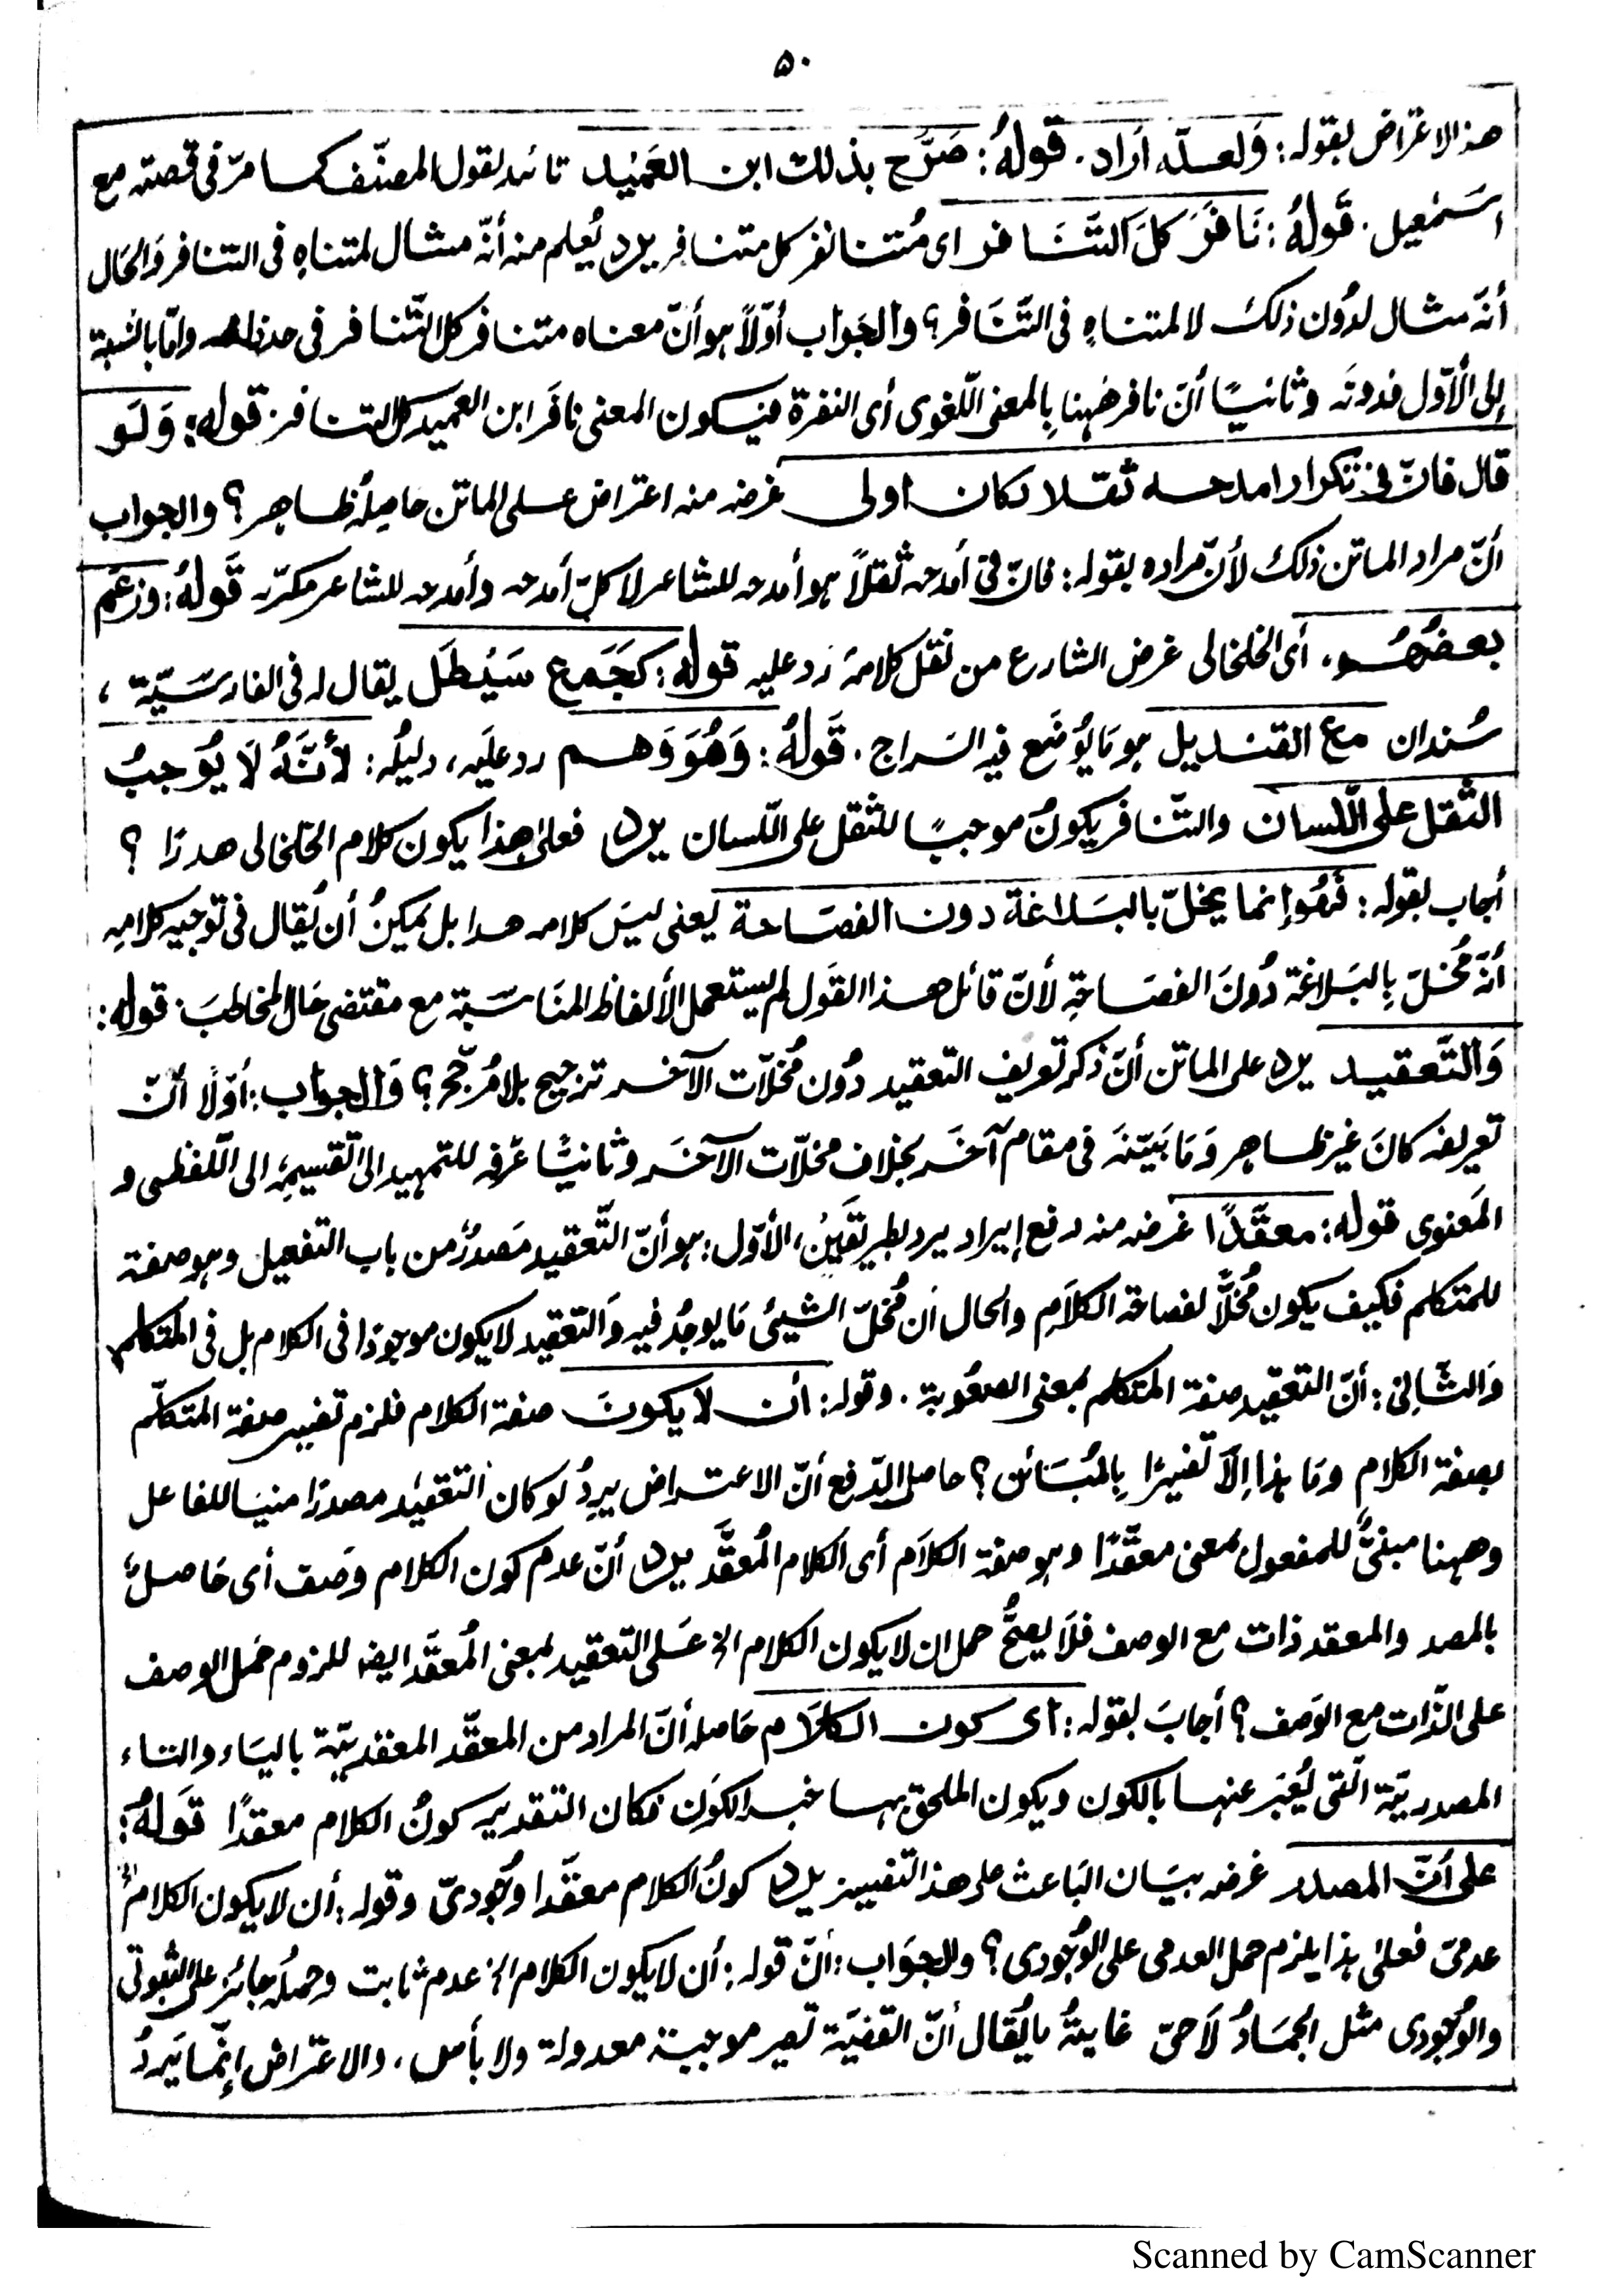 ۵۰
هذا الاعتراض بقوله: وَلعلّه أراد. قولهُ: صَرَّح بذلك ابن العَمِيْد تائيد لقول المصنّف كما مرّ فى قصته مع
اسمٰعيل. قَولهُ: نَافَرَ كلَّ التَّنَافر اى مُتنافر كل متنافر يرد يُعلم منه أنّه مثال لمتناهِ فى التنافر وَالحَال
أنّه مثال لدُون ذلك لا لمتناهِ فى التَّنَافر؟ والجَواب أوّلاً هو أنّ معناه متنافر كل التّنافر فى حد ذاته وامّا بالنّسبة
إلى الأوّل فدونَه وثانيًا أنّ نافر هٰهنا بِالمعنى اللّغوى أى النفرة فيكون المعنى نافَرَ ابن العميد كل التنافر قوله: وَلَو
قال فانّ فى تكرار امدحه ثقلا لكان اولى غرضه منه اعتراض على الماتن حاصِلُه ظاهر؟ والجواب
أنّ مراد الماتن ذلك لأنّ مراده بقوله: فانّ فى أمدحه ثقلاً هو أمدحه للشاعر لا كلّ أمدحه وأمدحه للشاعر مكرّر قَولهُ: وزعَم
بعضُهُم، أى الخلخالى غرض الشارح من نقل كلامهٖ رَد عليه قوله: كجَمع سَيْطَل يقال له فى الفارسَيّة،
سُندان مع القنديل هو مَا يُوضَع فيه السّراج. قَولهُ: وَهُوَ وَهم رد علَيه، دليلُه: لأنَّهُ لَا يُوجبُ
الثقل على اللّسان والتّنافر يكونُ موجبًا للثقل على اللّسان يرد فعلىٰ هٰذا يكون كلام الخلخالى هدرًا ؟
أجاب بقوله: فَهُو إنما يخلّ بالبَلاغة دون الفصَاحة يَعنى ليسَ كلامه هدرا بل يمكِنُ أن يُقال فى توجيه كلامِهٖ
أنّه مُخلّ بِالبَلاغة دُونَ الفصَاحَةِ لأنّ قائل هذا القَول لم يستعمل الألفاظ المنَاسَبة مع مقتضى حَال المخاطبَ. قوله:
وَالتَّعقيد يرد على الماتن أنّ ذكر تعريف التعقيد دُون مُخلّات الآخر ترجيح بلا مُرجّح؟ وَالجواب: أوّلًا أنّ
تعريفه كانَ غيرَ ظاهر وَمَا بَيّنهَ فى مقام آخَر بخلاف مخلّات الآخَر وثانيًا عرّفه للتمهيد الى تقسيمِهٖ الى اللّفظى و
المَعنوى قوله: معقَّدًا غرضه منه دفع إيراد يرد بطريقَينْ، الأوّل: هو أنّ التّعقيد مَصدرٌ من باب التفعيل وهو صفة
للمتكلم فكيف يكون مُخلًّا لفصاحة الكلاَمِ والحال اَن مُخلّ الشيئ مَا يوجُد فيه وَالتعقيد لا يكون موجودًا فى الكلام بل فى المتكلم
وَالثّانى: أنّ التعقيد صفة المتكلم بمعنى الصعُوبة. وقوله: أن لا يكونَ صفة الكلام فلزم تفسير صفة المتكلّم
بصفة الكلامِ ومَا هذا إلّا تفسيرًا بِالمُبَائن؟ حاصل الدّفع أنّ الاعتراض يرِدُ لو كان التعقيد مصدرًا مبنيًا للفاعل
وههنا مبنىٌّ للمفعول بمعنى معقّدًا وهو صفة الكلاَم أى الكلام المُعقَّد يرد أنّ عدم كون الكلام وَصف أى حَاصلٌ
بالمصدر والمعقد ذات مع الوصف فلَا يصحُّ حمل ان لا يكون الكلام الخ عَلى التعقيد بمعنى المُعقَّد ايضا للزوم حَمل الوصف
على الذّات مع الوَصف؟ أجابَ بقوله: أى كون الكلَام حَاصله أنّ المراد من المعقّد المعقديّة بالياء والتاء
المصدريّة الّتى يُعبَر عنها بالكون ويكون الملحق بها خبر الكَون فكان التقدير كونُ الكلام معقدًا قَولهُ:
على أنّ المصدر غرضه بيَان البَاعث على هذا التفسير يرد كونُ الكلام معقّدا وُجُودىّ وقوله: أن لا يكون الكلامُ الخ
عدمىّ فعلىٰ هذا يلزم حمل العدمى على الوُجُودى؟ والجوَاب: أنّ قوله: أن لا يكون الكلام الخ عدم ثابت وحملُه جائز على الثبوتى
والوُجُودى مثل الجمَادُ لَا حىّ غايةُ ما يُقال أنّ القضيّة تصير موجبة معدولة ولا بأس، والاعتراض إنّما يَردُ
Scanned by CamScanner